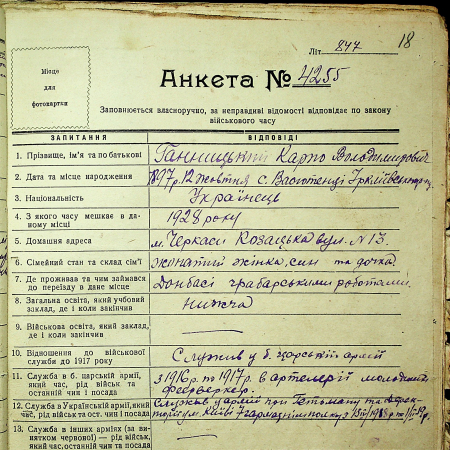 Літ 847
18
Місце
для
фотокартки
Анкета № 4255
Заповнюється власноручно, за неправдиві відомості відповідає по закону
військового часу
ЗАПИТАННЯ ВІДПОВІДІ
1. Прізвище, ім'я та по батькові Ганницький Карпо Володимирович
2. Дата та місце народження 1897 р. 12 жовтня с. Васютенці Іркліївського
3. Національність Українець
4. З якого часу мешкає в да-
ному місці 1928 року
5. Домашня адреса м. Черкаси Козацька вул. N 13.
6. Сімейний стан та склад сім'ї жонатий жінка, син та дочка
7. Де проживав та чим займався
до переїзду в дане місце Донбасі грабарськими роботами.
8. Загальна освіта, який учбовий
заклад, де і коли закінчив нижча
9. Військова освіта, який заклад,
де і коли закінчив
10. Відношення до військової
служби до 1917 року Служив у б. царській армії
11. Служба в б. царській армії,
який час, рід військ та
останній чин і посада з 1916 р. по 1917 р. в артелерії молодший
феєрверкер.
12. Служба в Українській армії, який
час, рід військ та ост. чин і посада Служив у армії при Гетьману та
у м. Київі
13. Служба в інших арміях (за ви-
нятком червоної) — рід військ,
який час, останній чин та посада